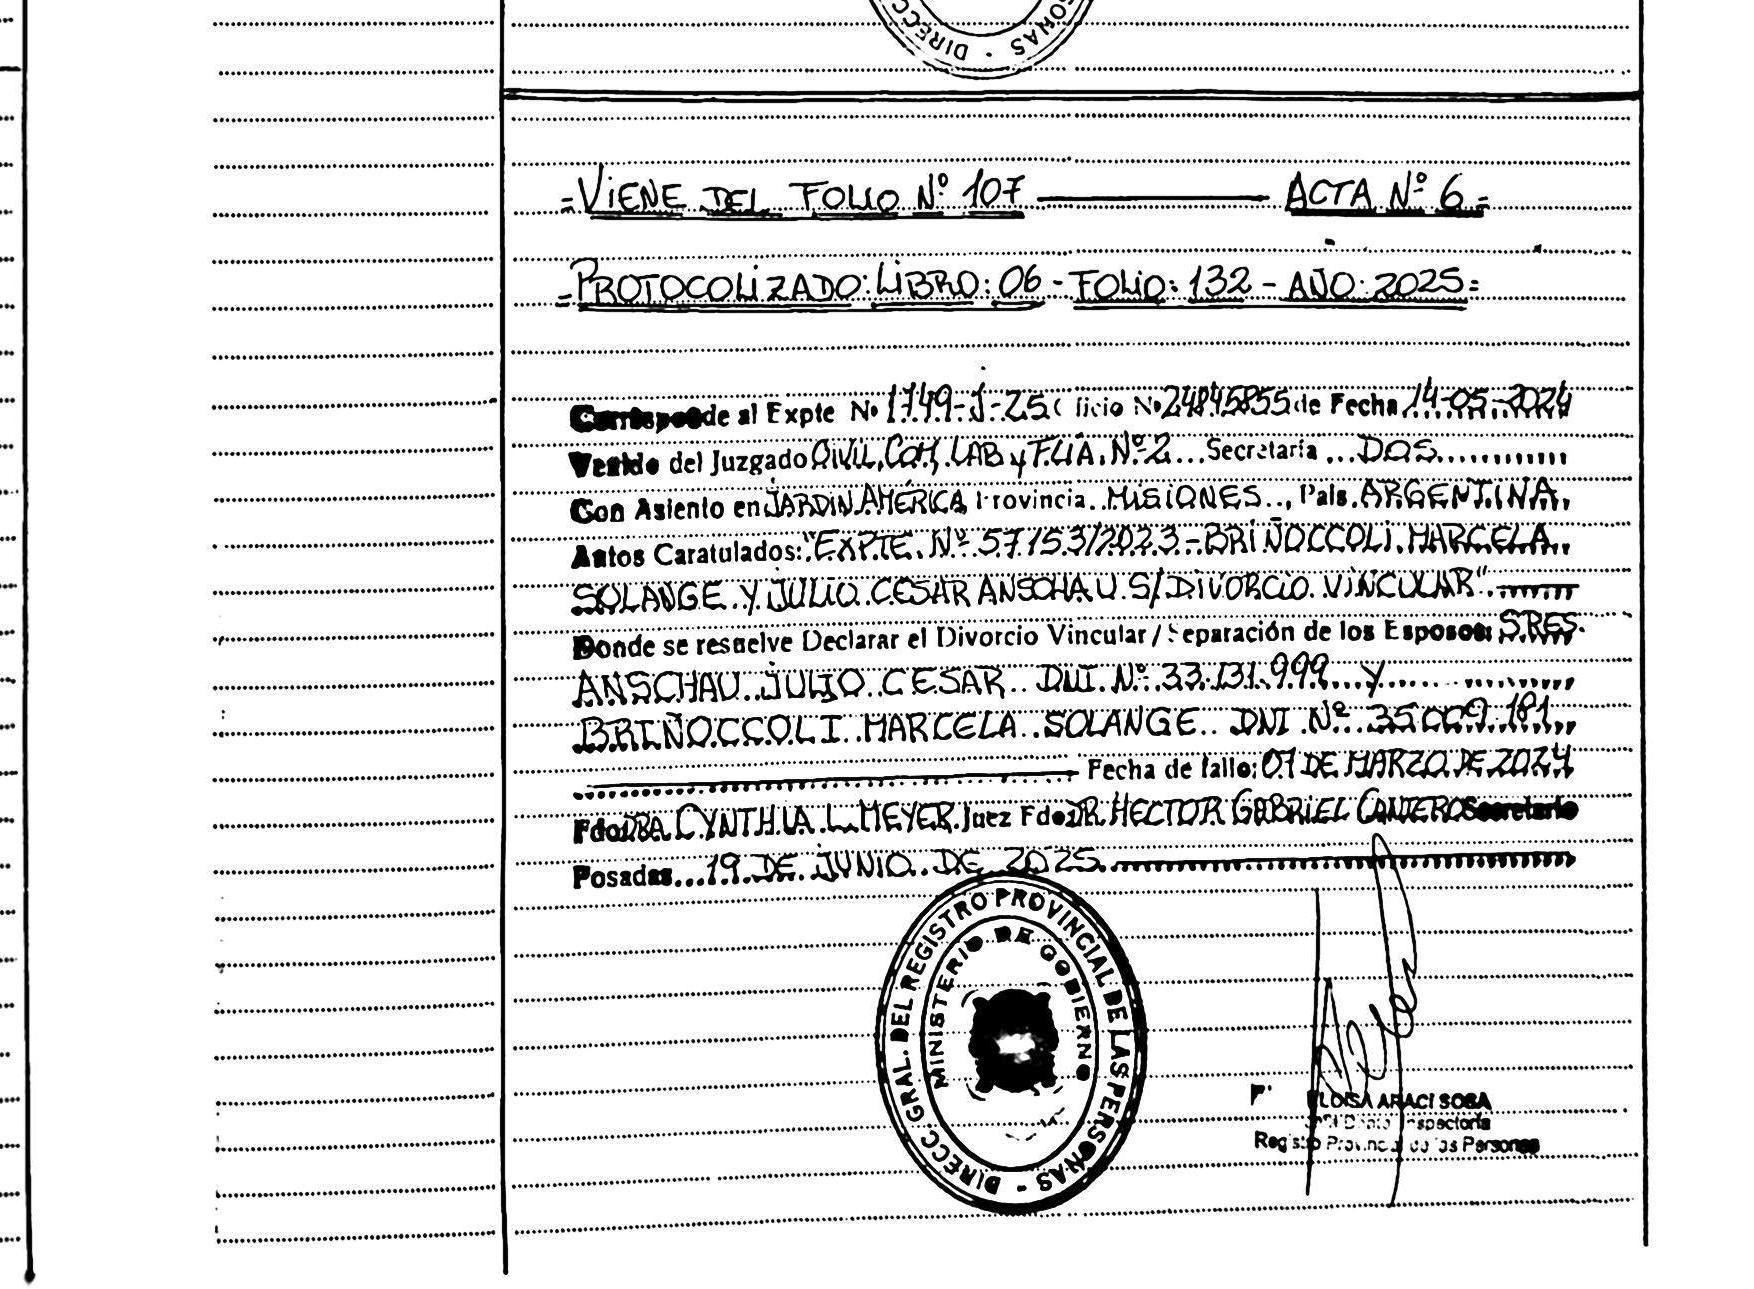 DIRECC
ONAS -
=VIENE DEL FOLIO Nº 107 ——— ACTA Nº 6=
=PROTOCOLIZADO: LIBRO: 06 - FOLIO: 132 - AÑO: 2025=
Corresponde al Expte Nº 1749-J-25 Oficio Nº 24845855 de Fecha 14-05-2024
Venido del Juzgado CIVIL, COM, LAB y FLIA. Nº 2 ... Secretaría ... DOS
Con Asiento en JARDIN AMÉRICA, Provincia MISIONES, País ARGENTINA.
Autos Caratulados: "EXPTE. Nº 57153/2023 - BRIÑOCCOLI MARCELA
SOLANGE Y JULIO CESAR ANSCHAU S/ DIVORCIO VINCULAR".
Donde se resuelve Declarar el Divorcio Vincular / Separación de los Esposos: SRES.
ANSCHAU JULIO CESAR DNI Nº 33.131.999 Y
BRIÑOCCOLI MARCELA SOLANGE DNI Nº 35.009.181
Fecha de fallo: 07 DE MARZO DE 2024
Fdo: DRA CYNTHIA L. MEYER Juez Fdo: DR HECTOR GABRIEL CANTERO Secretario
Posadas 19 DE JUNIO DE 2025.
DIRECC. GRAL. DEL REGISTRO PROVINCIAL DE LAS PERSONAS -
MINISTERIO DE GOBIERNO
P. ELOISA ARACI SOSA
Dpto Inspectoría
Registro Provincial de las Personas